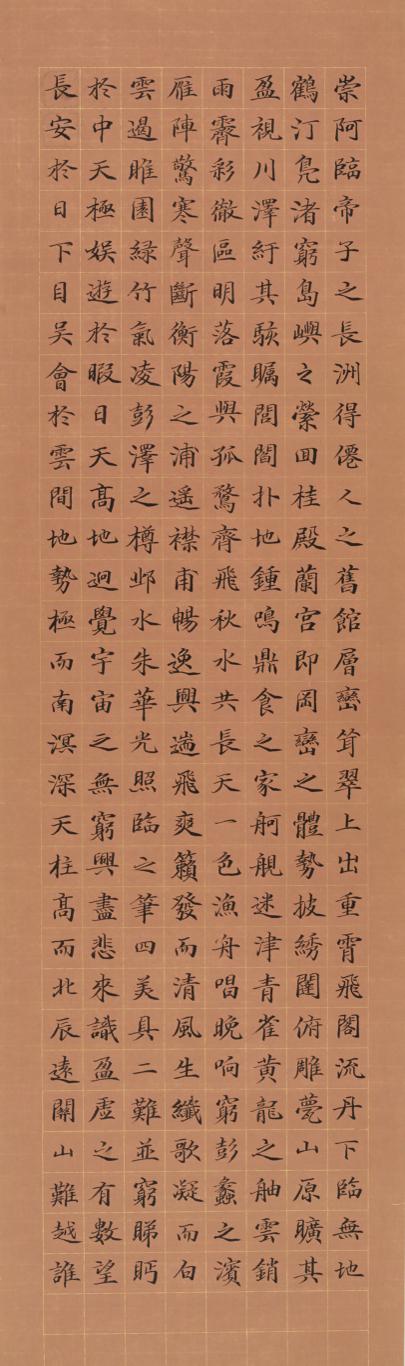 崇阿臨帝子之長洲得僊人之舊館層巒耸翠上出重霄飛閣流丹下臨無地
鶴汀鳧渚窮島嶼之縈回桂殿蘭宫即岡巒之體勢披綉闥俯雕甍山原曠其
盈視川澤紆其駭矚閭閻扑地鍾鳴鼎食之家舸舰迷津青雀黄龍之舳雲銷
雨霽彩徹區明落霞與孤鶩齊飛秋水共長天一色漁舟唱晚响窮彭蠡之濱
雁陣驚寒聲斷衡陽之浦遥襟甫暢逸興遄飛爽籟發而清風生纖歌凝而白
雲遏睢園緑竹氣凌彭澤之樽邺水朱華光照臨之筆四美具二難並窮睇眄
於中天極娱遊於暇日天髙地迥覺宇宙之無窮興盡悲來識盈虚之有數望
長安於日下目吴會於雲間地勢極而南溟深天柱髙而北辰遠關山難越誰